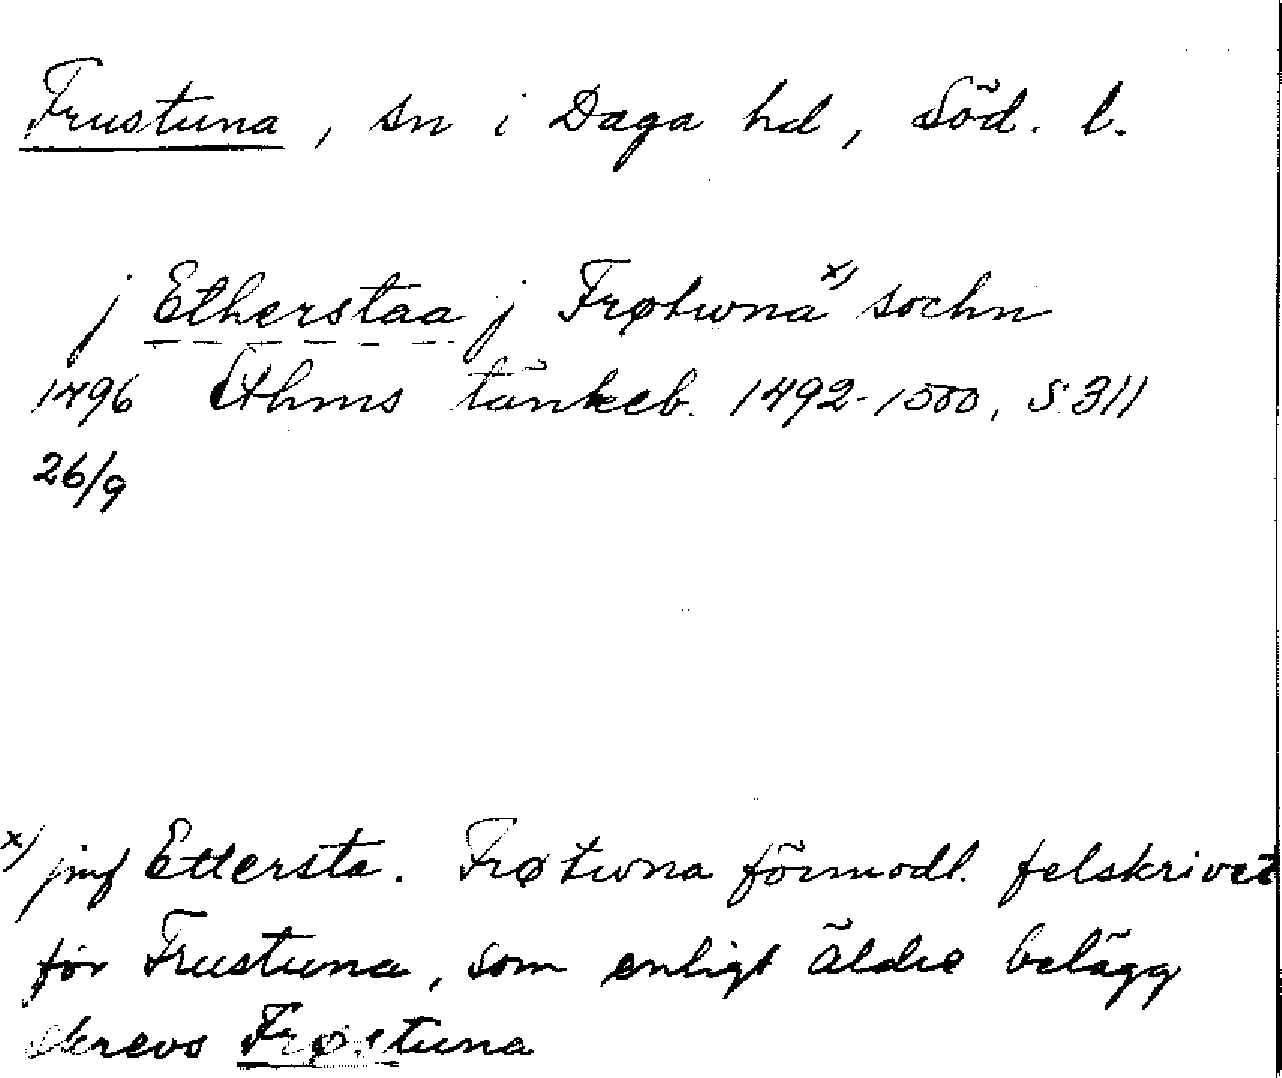 Frustuna, sn i Daga hd, Söd. l.
j Etherstaa j Frøtwna x) sochn
1496 Sthms tänkeb. 1492-1500, S 311
26/9
x) jmf Ettersta. Frøtwna förmodl. felskrivet
för Frustuna, som enligt äldre belägg
skrevs Frøstuna